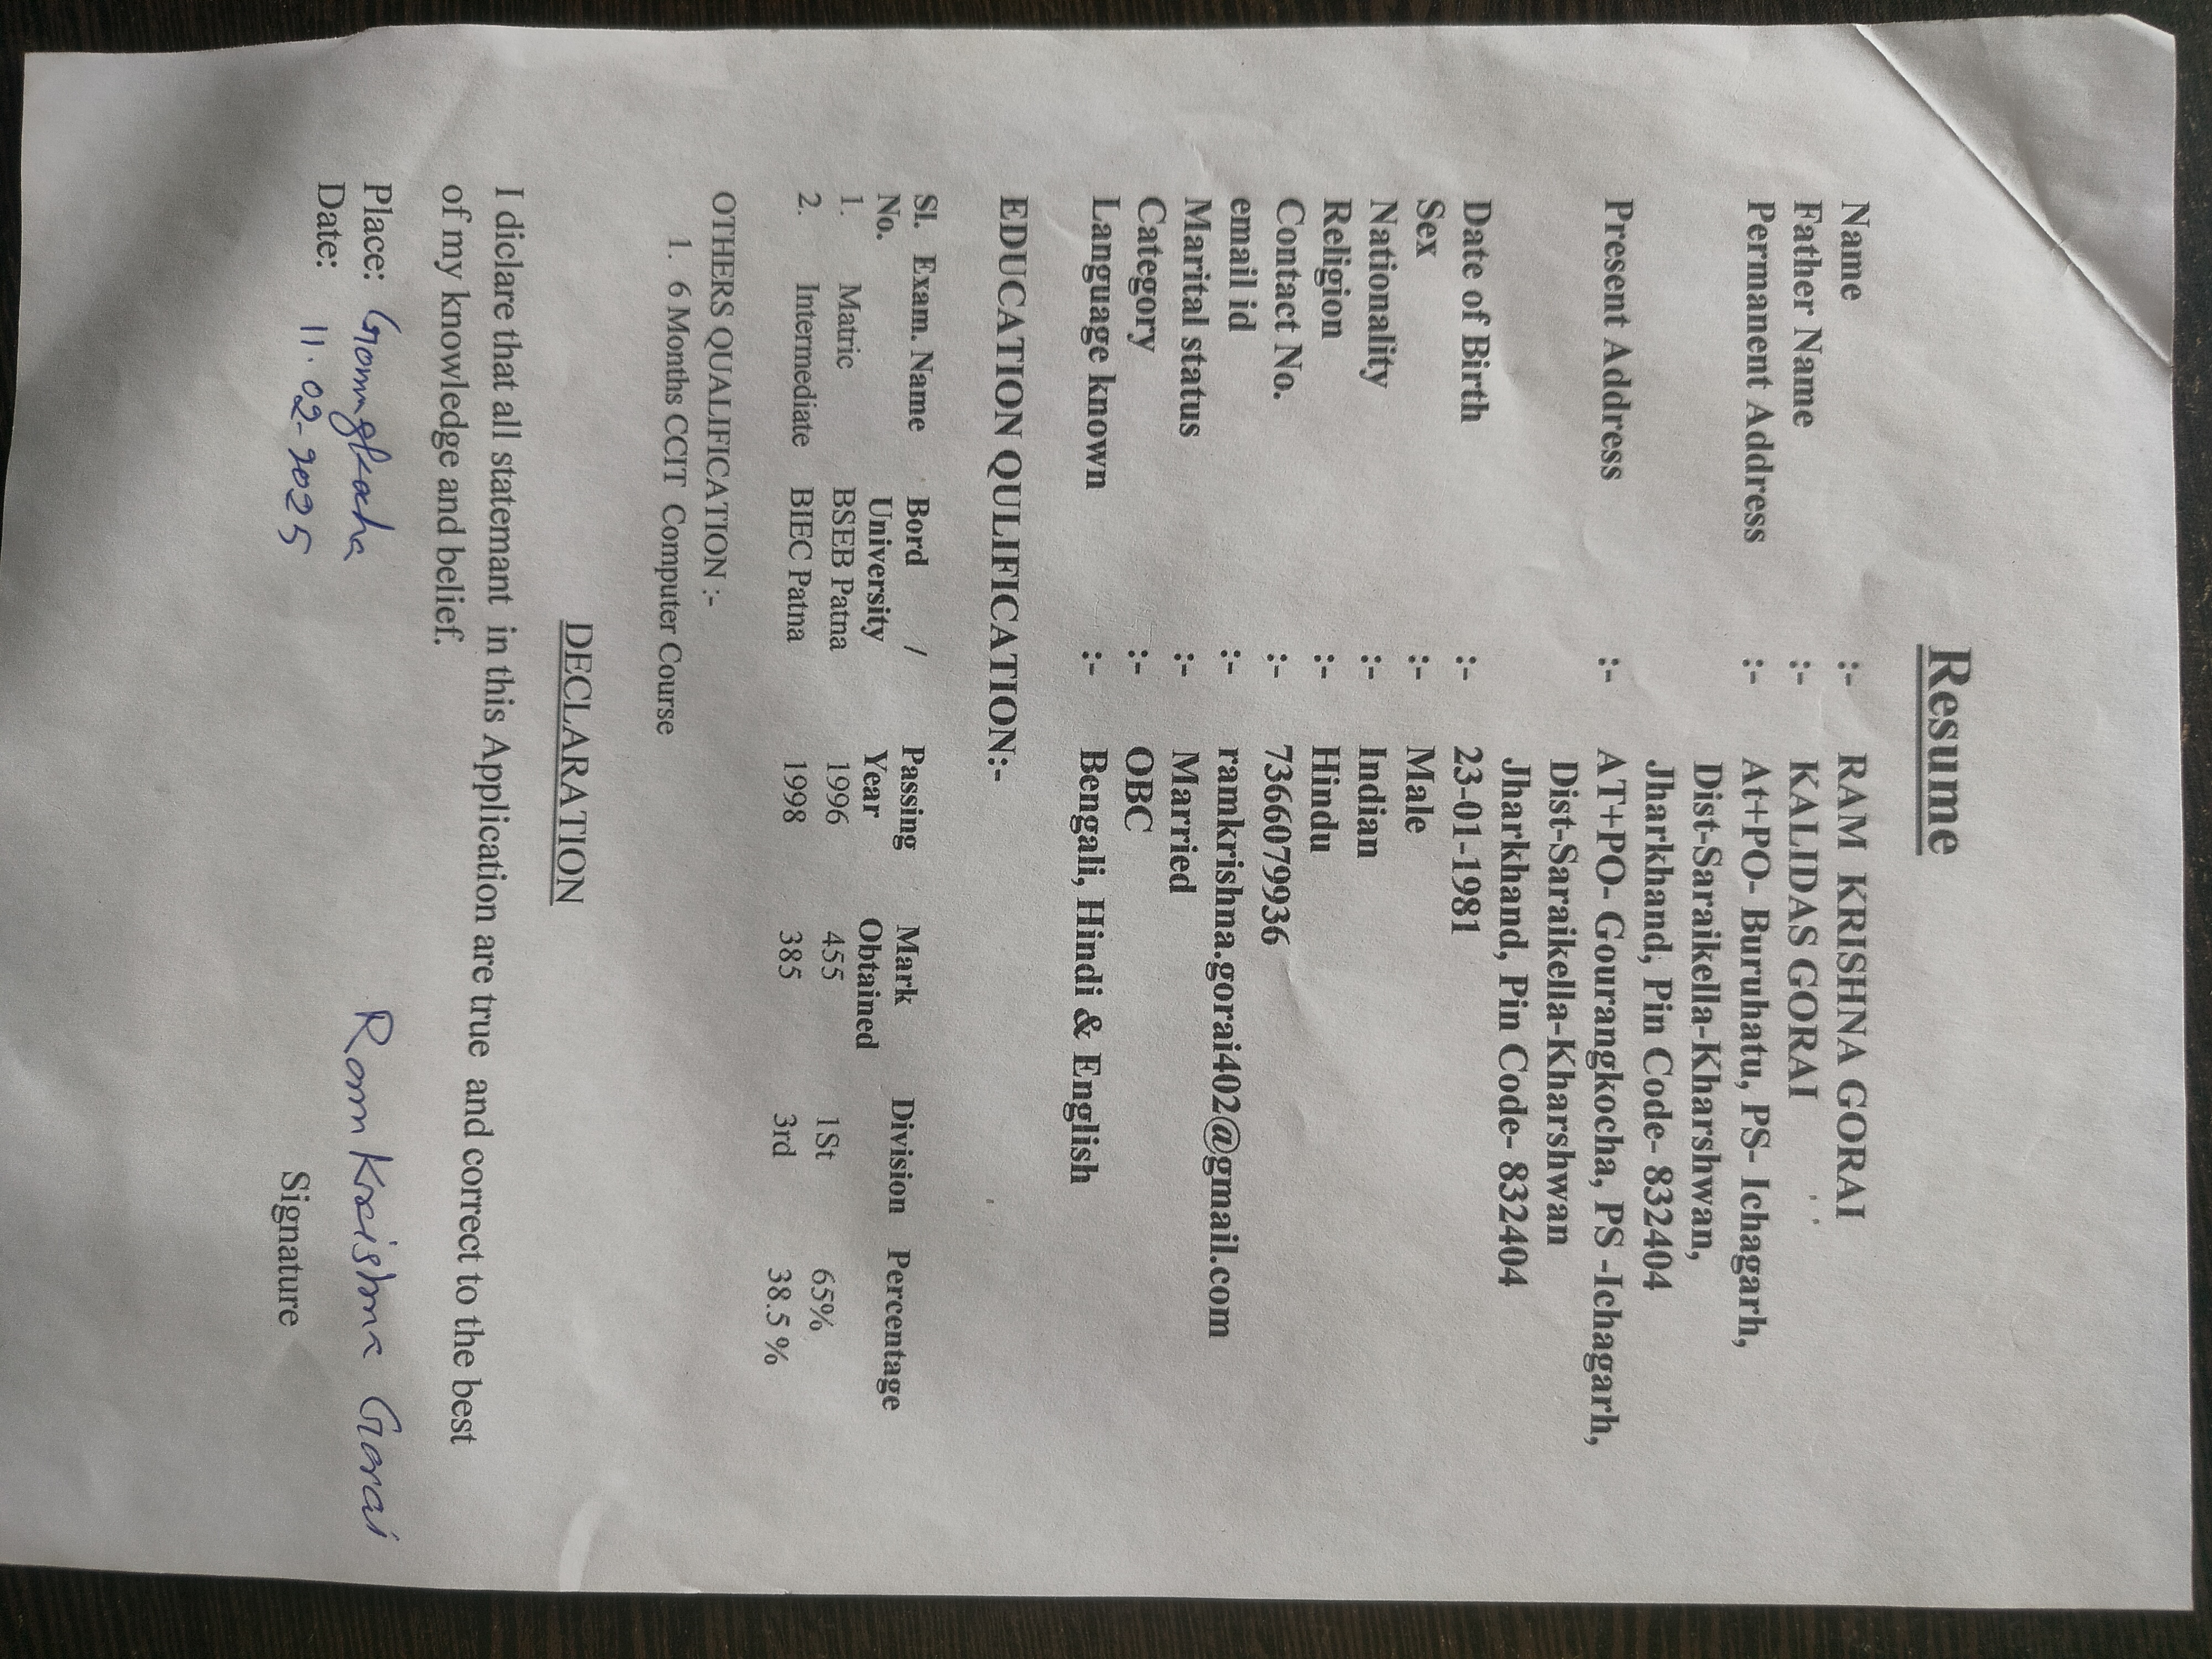 Resume
Name :- RAM KRISHNA GORAI
Father Name :- KALIDAS GORAI
Permanent Address :- At+PO- Buruhatu, PS- Ichagarh,
Dist-Saraikella-Kharshwan,
Jharkhand, Pin Code- 832404
Present Address :- AT+PO- Gourangkocha, PS -Ichagarh,
Dist-Saraikella-Kharshwan
Jharkhand, Pin Code- 832404
Date of Birth :- 23-01-1981
Sex :- Male
Nationality :- Indian
Religion :- Hindu
Contact No. :- 7366079936
email id :- ramkrishna.gorai402@gmail.com
Marital status :- Married
Category :- OBC
Language known :- Bengali, Hindi & English
EDUCATION QULIFICATION:-
Sl. Exam. Name Bord / Passing Mark Division Percentage
No. University Year Obtained
1. Matric BSEB Patna 1996 455 1St 65%
2. Intermediate BIEC Patna 1998 385 3rd 38.5 %
OTHERS QUALIFICATION :-
1. 6 Months CCIT Computer Course
DECLARATION
I diclare that all statemant in this Application are true and correct to the best
of my knowledge and belief.
Place:
Date: 11.02-2025
Ram Krishna Gorai
Signature